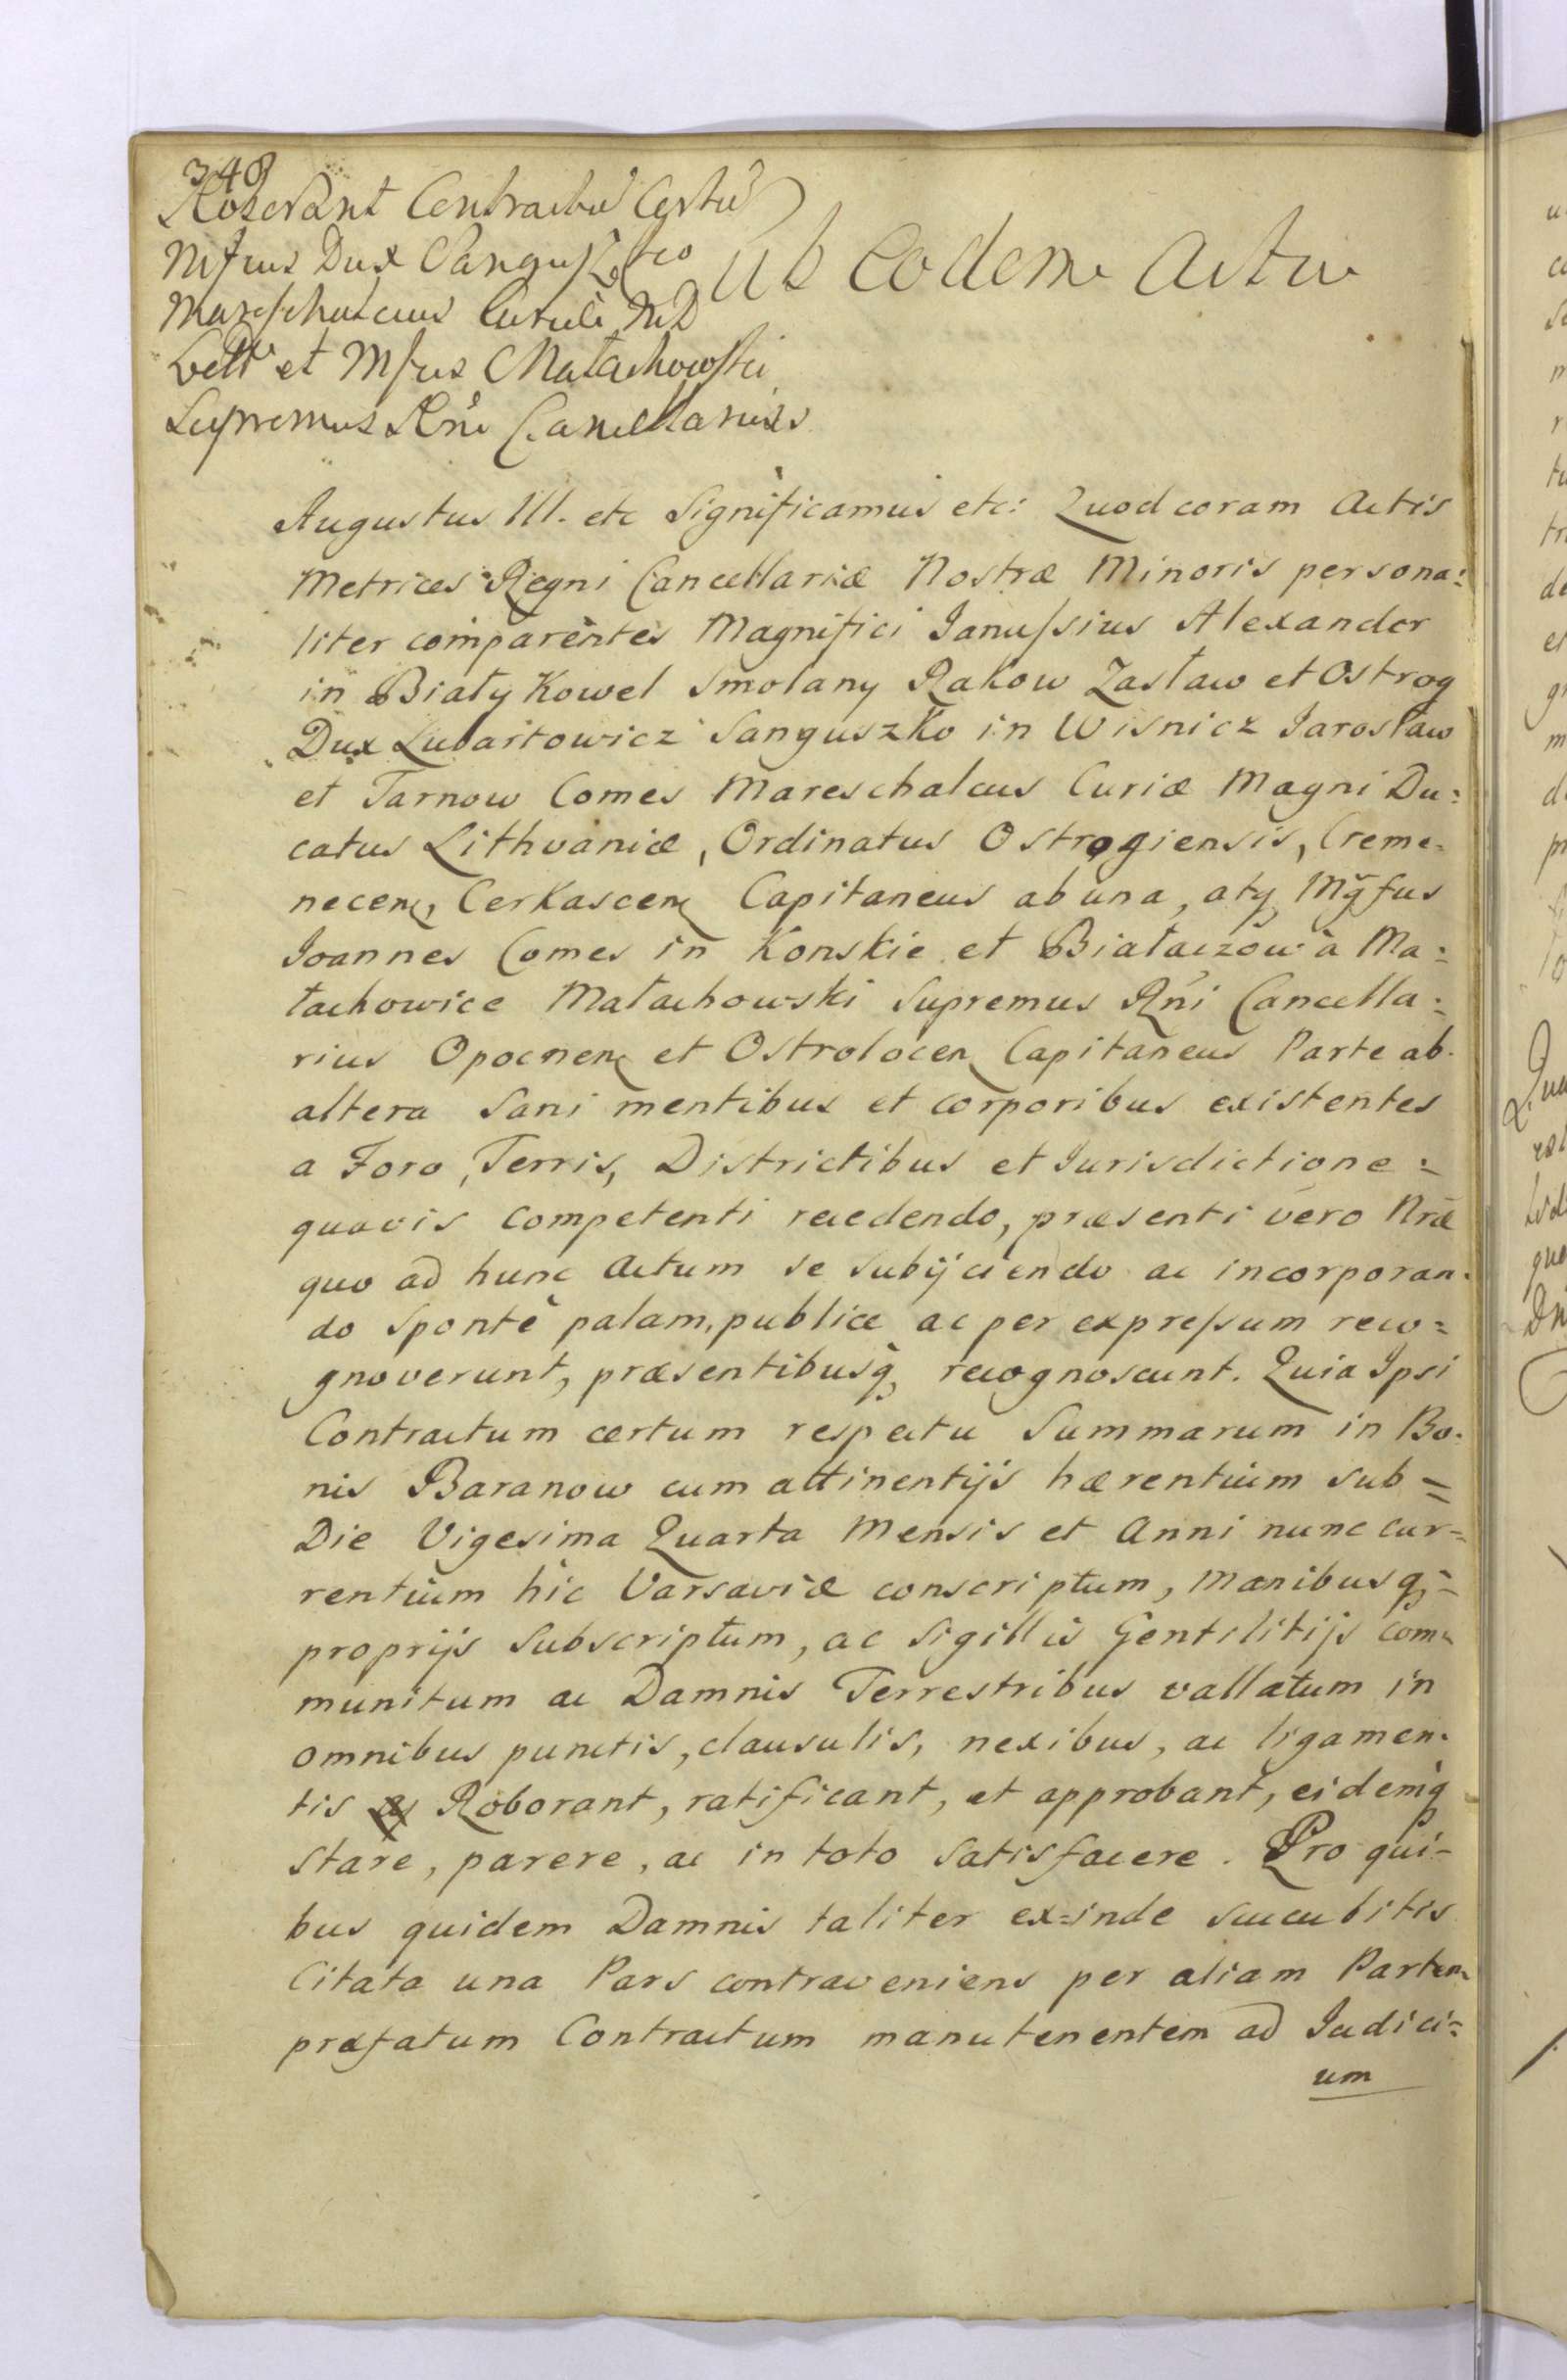 348
Roborant Contractũ Certũ
Mfcus Dux Sanguszko
Mareschalcus Curiæ MD
Litt et Mfcus Małachowski
Supremus Rni Cancellarius
Sub Eodem Actu
Augustus III. etc Significamus etc: Quod coram Actis
Metrices Regni Cancellariæ Nostræ Minoris persona:
liter comparentes Magnifici Janussius Alexander
in Biały Kowel Smolany Rakow Zasław et Ostrog
Dux Lubartowicz Sanguszko in Wisnicz Jarosław
et Tarnow Comes Mareschalcus Curiæ Magni Du:
catus Lithvaniæ, Ordinatus Ostrogiensis, Creme:
necen, Cerkascen Capitaneus ab una, atq Mgfus
Joannes Comes in Konskie et Białaczow à Ma:
łachowice Małachowski Supremus Rni Cancella:
rius Opocnen et Ostrolocen Capitaneus Parte ab
altera Sani mentibus et corporibus existentes
a Foro, Terris, Districtibus et Jurisdictione:
quavis competenti recedendo, præsenti vero Nræ
quo ad hunc Actum se subijciendo ac incorporan:
do Sponte palam, publice ac per expressum reco:
gnoverunt, præsentibusq recognoscunt. Quia Ipsi
Contractum certum respectu Summarum in Bo:
nis Baranow cum attinentijs hærentium sub=
Die Vigesima Quarta Mensis et Anni nunc cur=
rentium hic Varsaviæ conscriptum, Manibusq=
proprijs Subscriptum, ac Sigillis Gentilitijs com=
munitum ac Damnis Terrestribus vallatum in
omnibus punctis, clausulis, nexibus, ac ligamen:
tis Roborant, ratificant, et approbant, eidemq
stare, parere, ac in toto satisfacere. Pro qui=
bus quidem Damnis taliter ex=inde succubitis
Citata una Pars contraveniens per aliam Partem
præfatum Contractum manutenentem ad Judici=
um